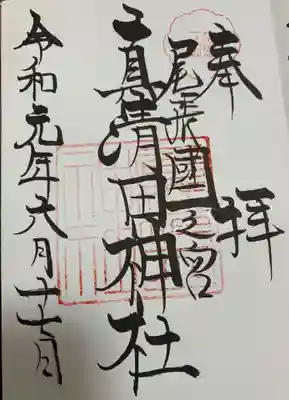 奉拝
尾張國一之宮
真清田神社
令和元年六月十七日